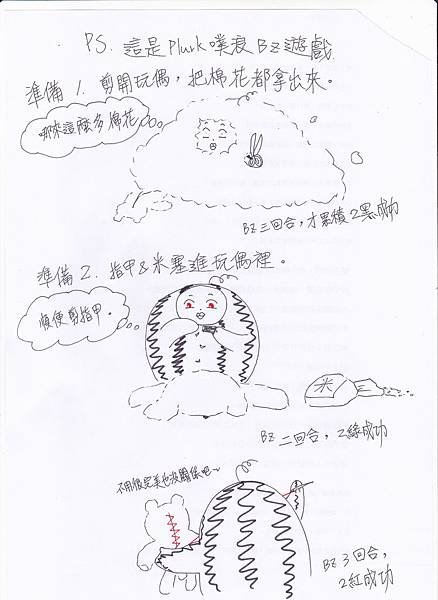 PS. 這是Plurk噗浪BZ遊戲
準備1. 剪開玩偶，把棉花都拿出來。
哪來這麼多棉花
BZ三回合，才累積2黑成功
準備2. 指甲&米塞進玩偶裡。
順便剪指甲。
米
BZ 二回合，2綠成功
不用很完美也沒關係吧~
BZ 3回合，
2紅成功